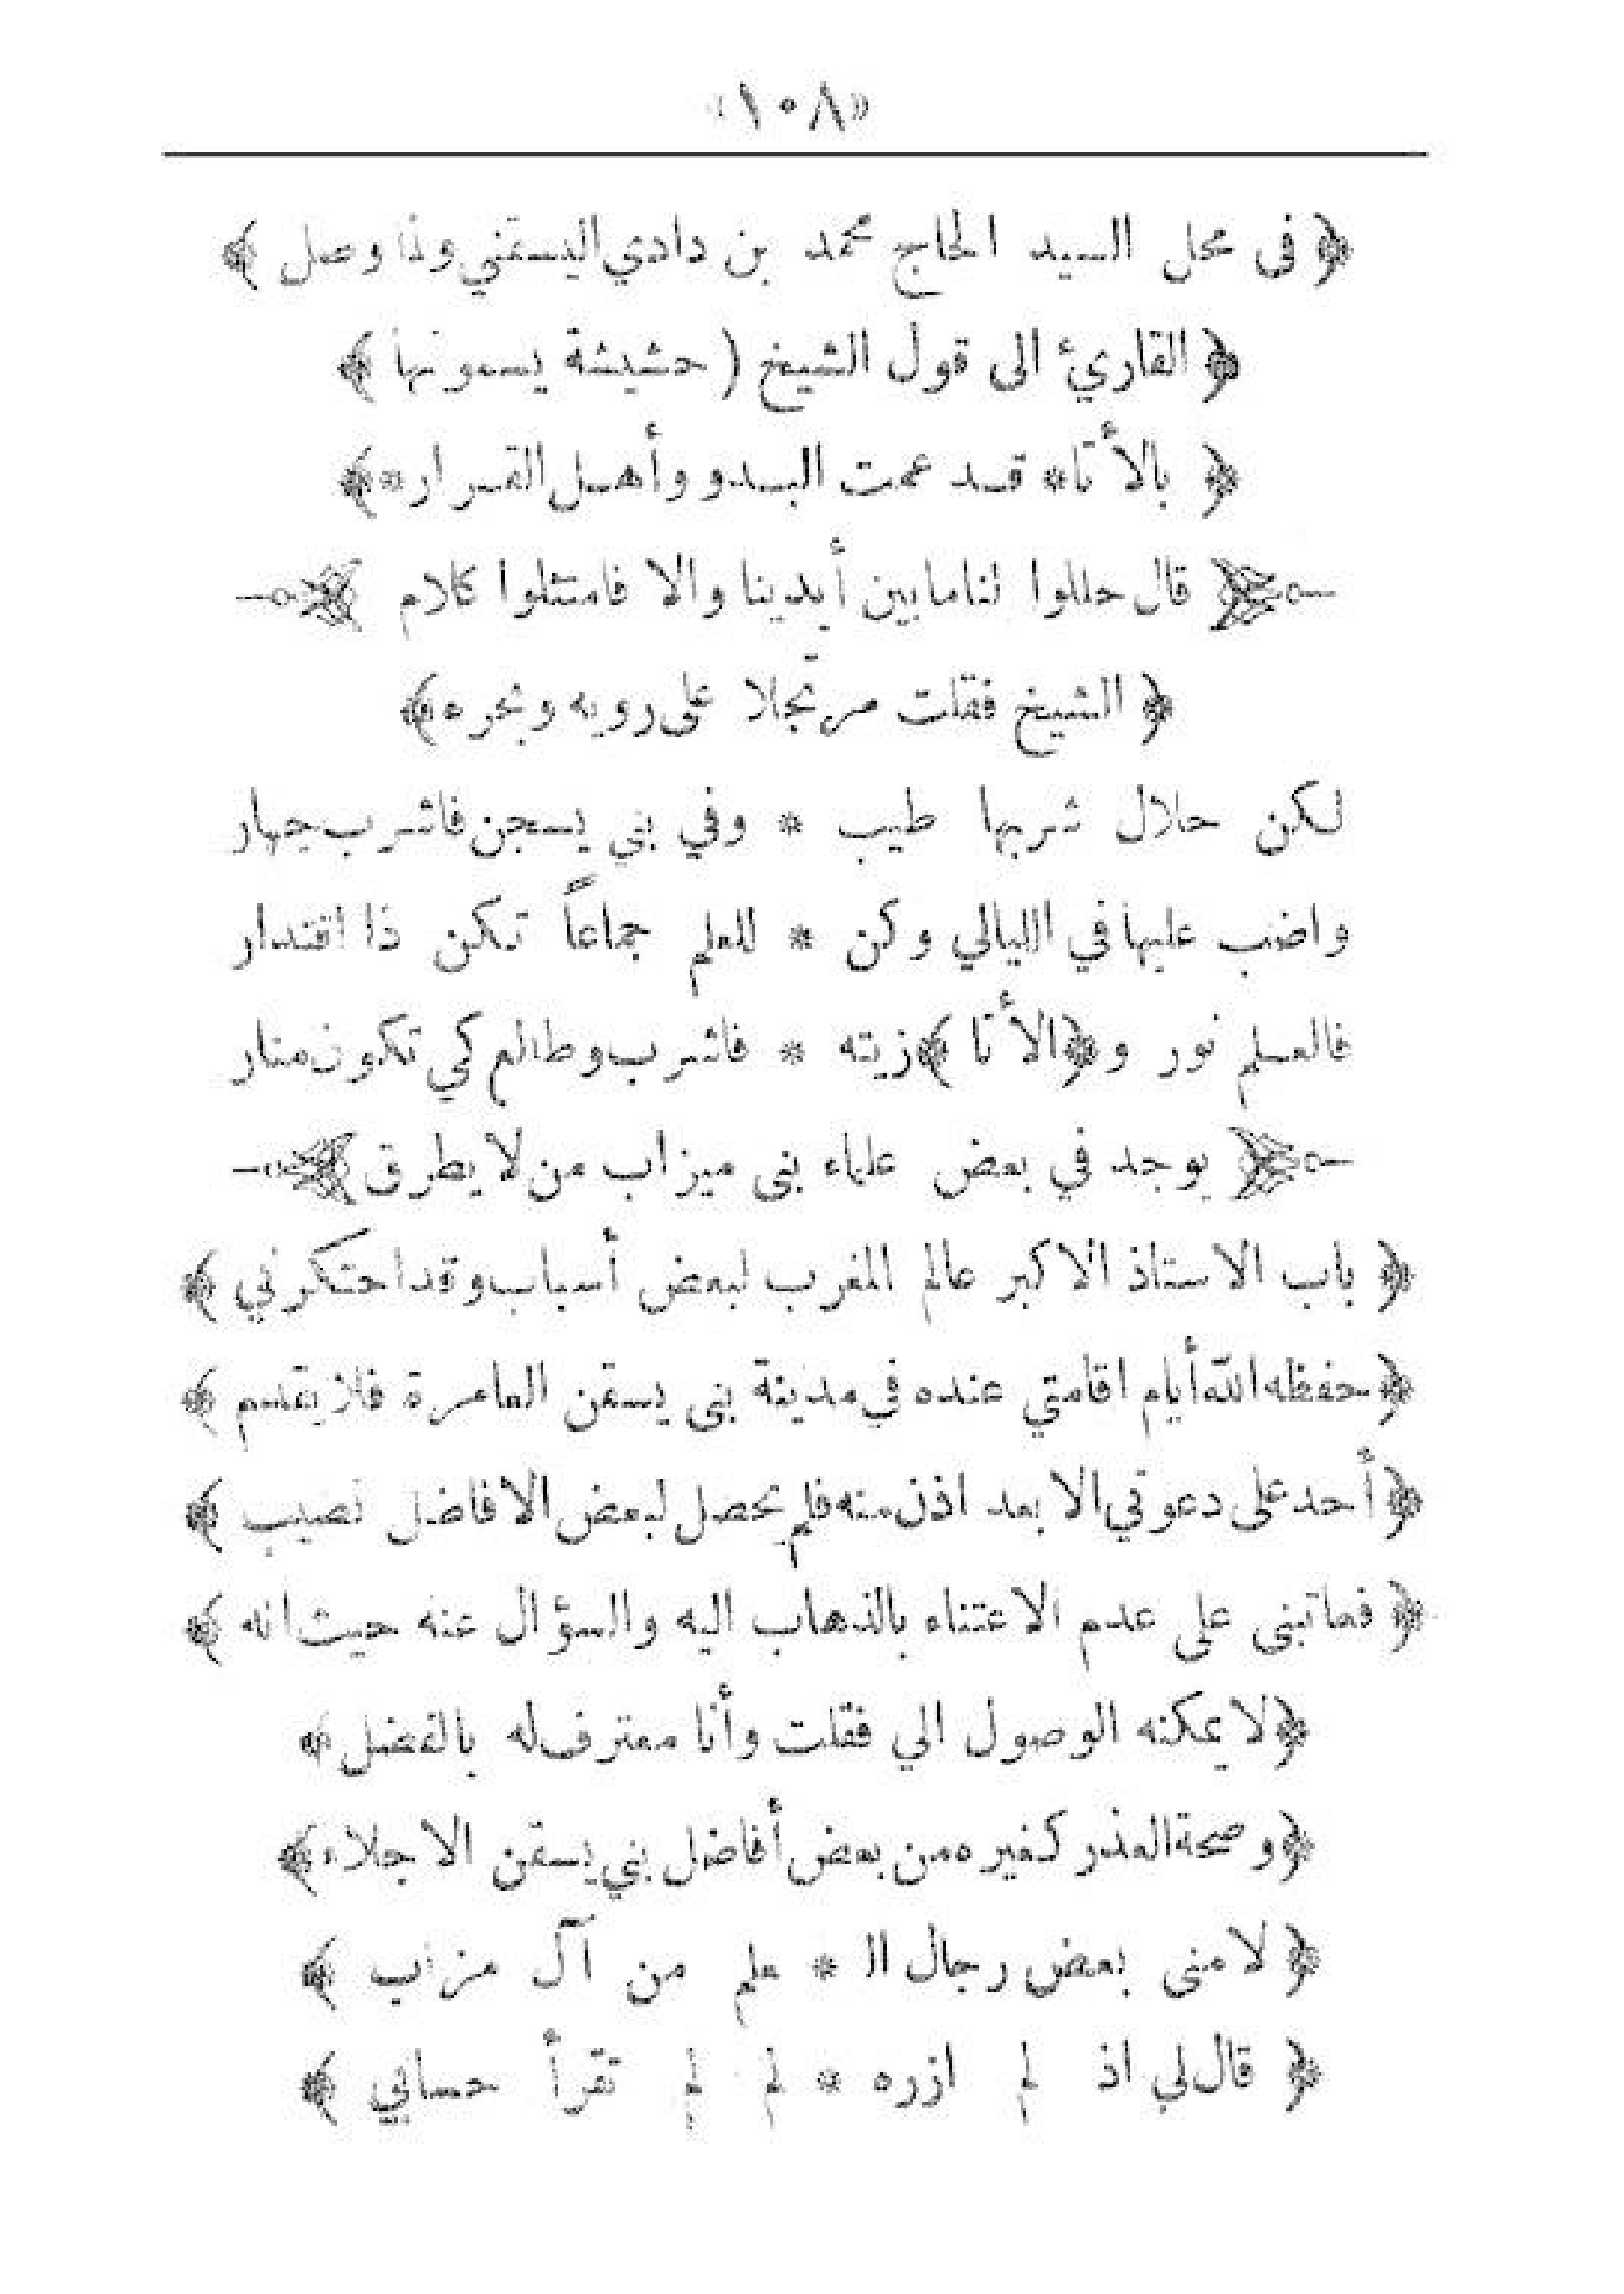 «١٠٨»
﴿ فى محل السيد الحاج محمد بن دادي اليسقني ولما وصل ﴾
﴿ القارئ الى قول الشيخ ( حشيشة يسمونها ﴾
﴿ بالأتا* قد عمت البدو وأهل القرار* ﴾
﴿ قال حللوا لنا ما بين أيدينا والا فامتثلوا كلام ﴾
﴿ الشيخ فقلت مرتجلا على رويه وبحره ﴾
لكن حلال شربها طيب * وفي بني يسجن فاشرب جهار
واضب عليها في الليالي وكن * للعلم جماعاً تكن ذا اقتدار
فالعلم نور و﴿الأتا﴾زيته * فاشرب وطالع كي تكون منار
﴿ يوجد في بعض علماء بنى ميزاب من لا يطرق ﴾
﴿ باب الاستاذ الاكبر عالم المغرب لبعض أسباب وقد احتكرني ﴾
﴿ حفظه الله أيام اقامتي عنده في مدينة بنى يسقن العامرة فلا يقدم ﴾
﴿ أحد على دعوتي الا بعد اذن منه فلم يحصل لبعض الافاضل نصيب ﴾
﴿ فعاتبنى على عدم الاعتناء بالذهاب اليه والسؤال عنه حيث انه ﴾
﴿ لا يمكنه الوصول الي فقلت وأنا معترف له بالفضل ﴾
﴿ وصحة العذر كغيره من بعض أفاضل بني يسقن الاجلاء ﴾
﴿ لامنى بعض رجال الـ * علم من آل مزاب ﴾
﴿ قال لي اذ لم ازره * لم لم تقرأ حسابي ﴾